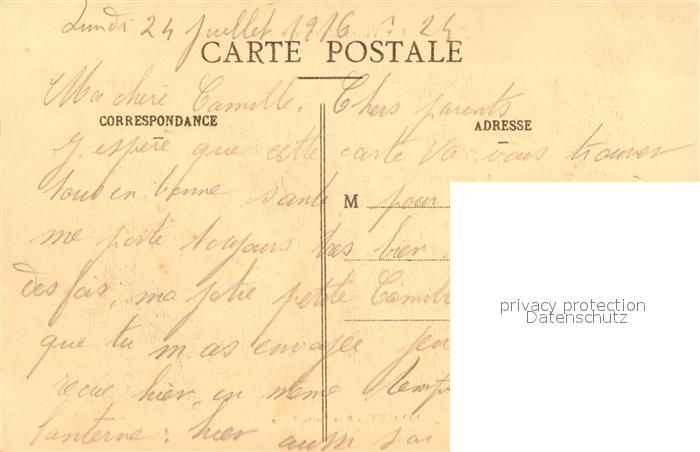 Lundi 24 Juillet 1916 24
CARTE POSTALE
Ma chère Camille. Chers parents
CORRESPONDANCE
ADRESSE
J espère que cette carte va vous trouver
tous en bonne santé
M
pour
me porte toujours très bien
des fois, ma jolie petite Camill
que tu m as envoyée
recue hier en meme temp
lanterne : hier aussi
privacy protection
Datenschutz